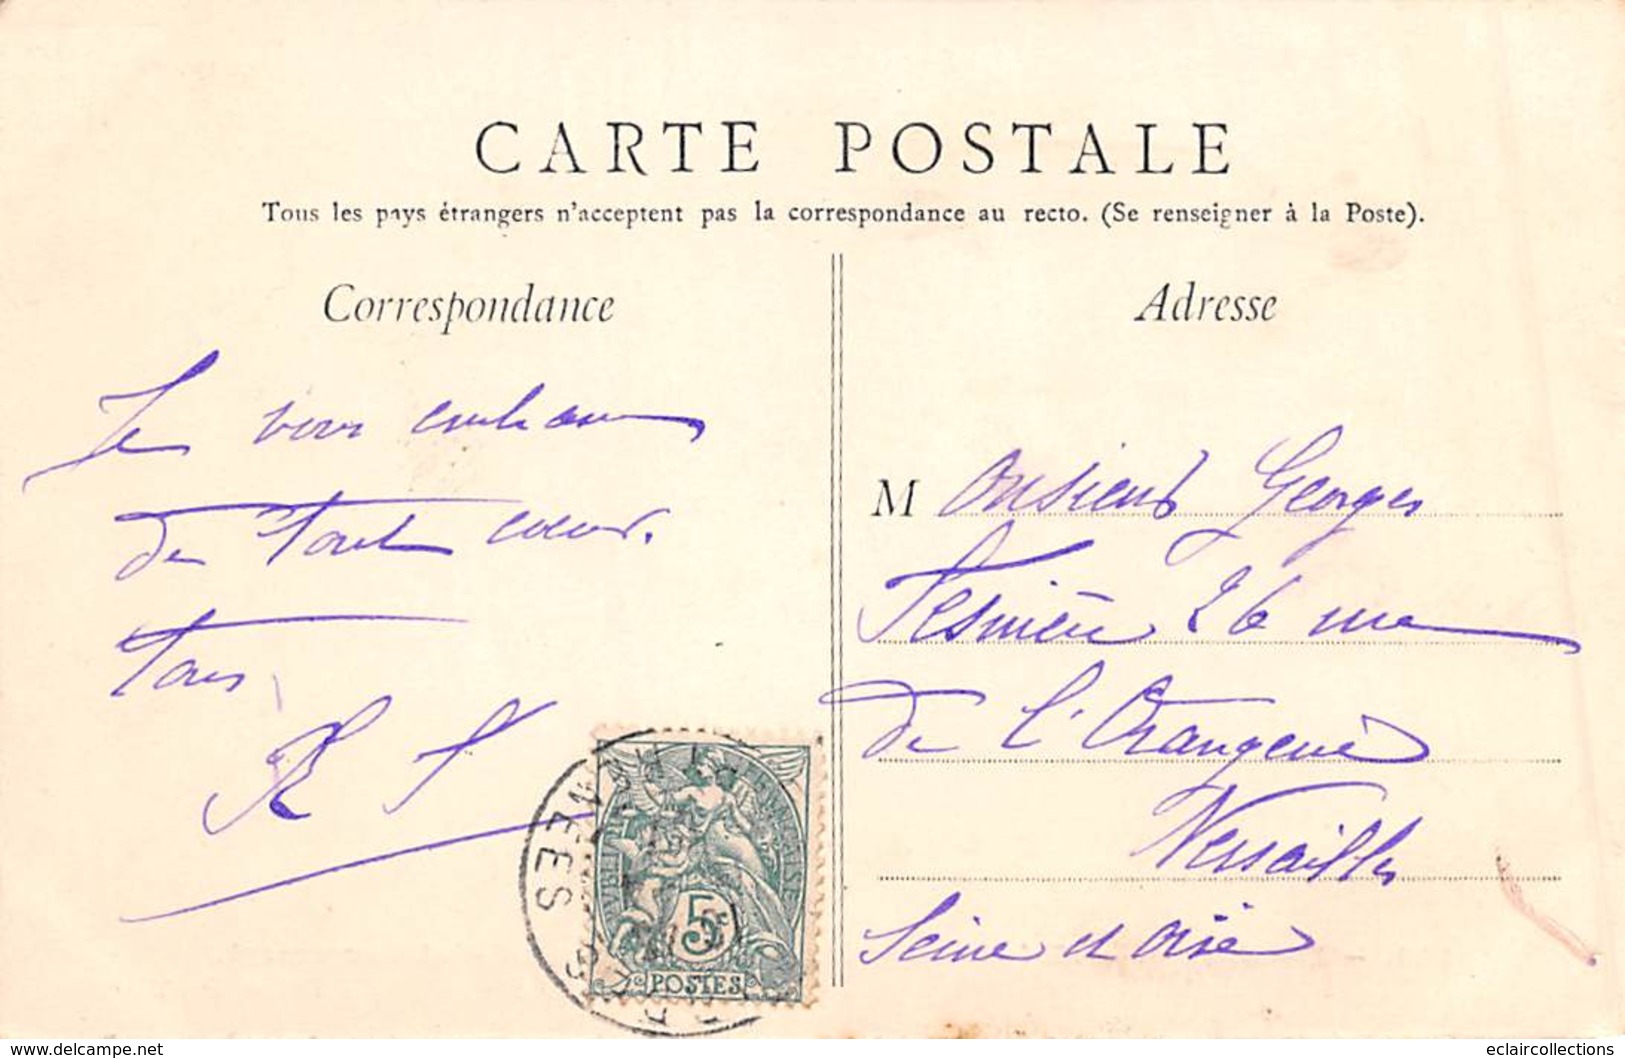 CARTE POSTALE
Tous les pays étrangers n'acceptent pas la correspondance au recto. (Se renseigner à la Poste).
Correspondance
Je vous
de tout cœur.
R
Adresse
Monsieur Georges
26 rue
de l'Orangerie
Versailles
Seine et Oise
5c
POSTES
www.delcampe.net
eclaircollections